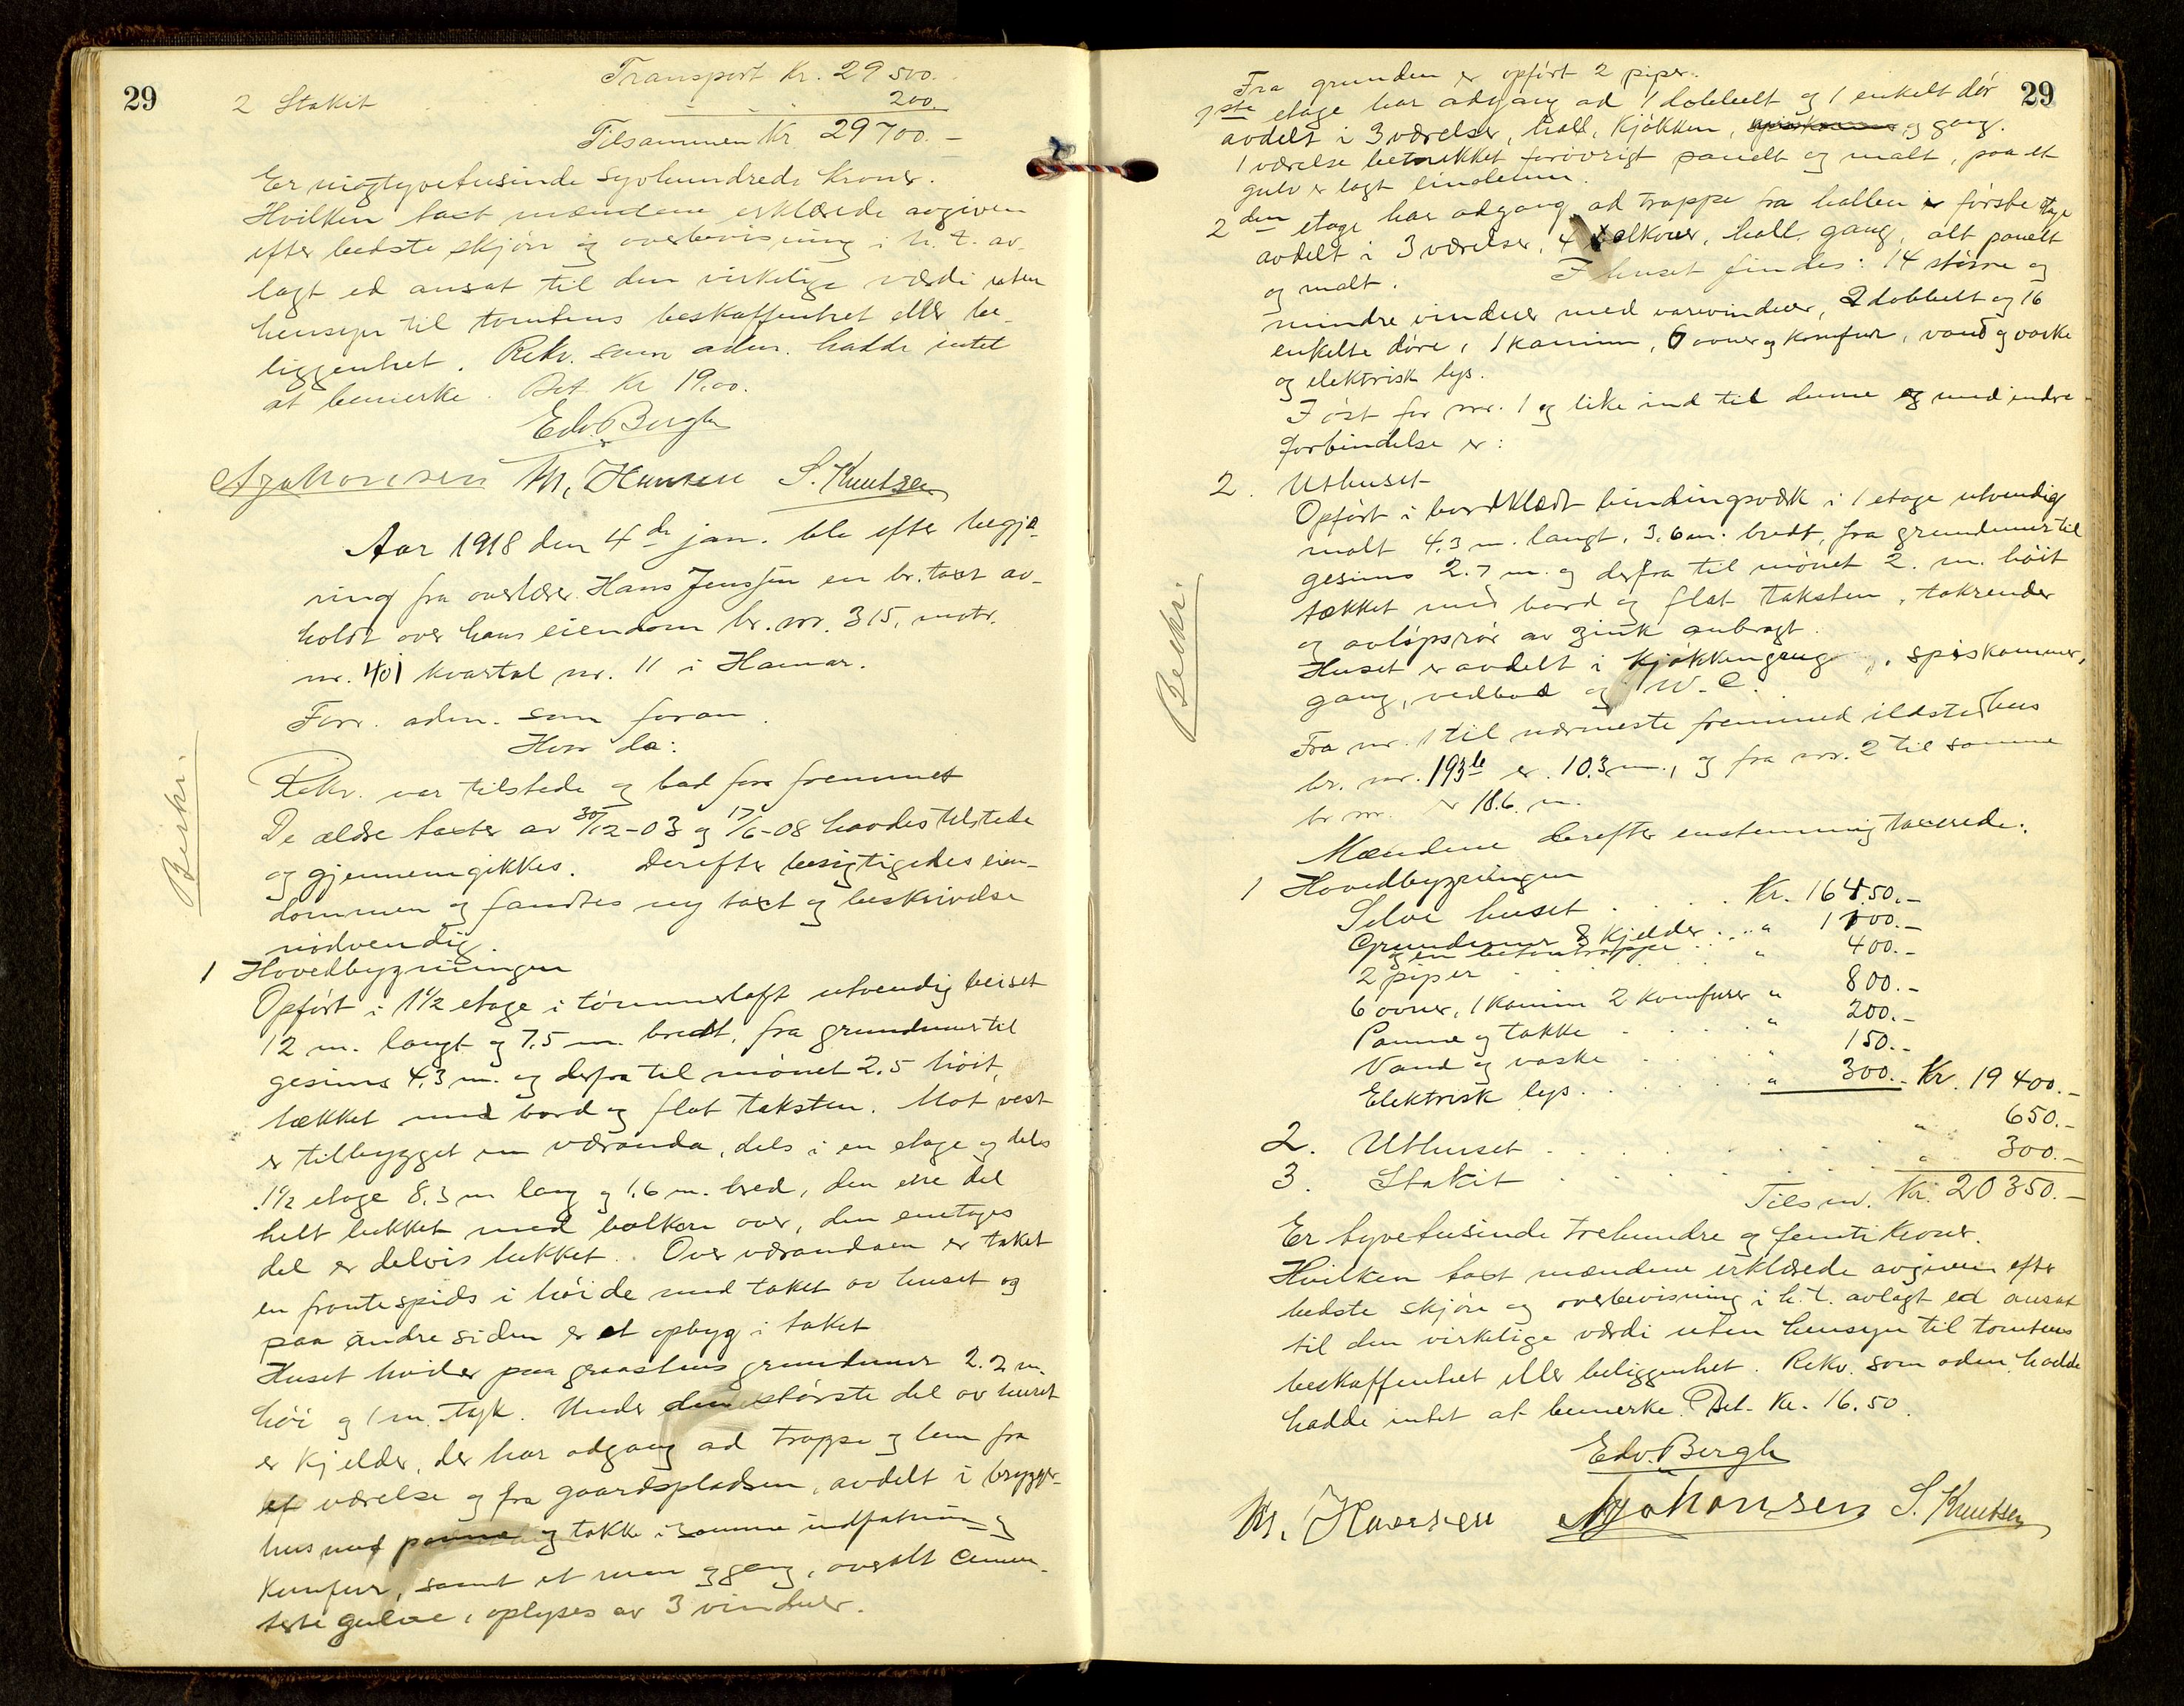 29
Transport Kr. 29500.
2 Stakit - - - 200.
Tilsammen Kr. 29700.-
Er niogtyvetusinde syvhundrede kroner.
Hvilken taxt mændene erklærede avgiven
efter bedste skjøn og overbevisning i h. t. av-
lagt ed ansat til den virkelige værdi uten
hensyn til tomtens beskaffenhet eller be-
liggenhet. Rekv. som adm. hadde intet
at bemerke. Bet. Kr 19.00.
Edv. Bergh
A Johansen M. Hansen S. Knutsen
Aar 1918 den 4de jan. ble efter begjæ-
ring fra overlærer Hans Jenssen en br. taxt av-
holdt over hans eiendom br. nr. 315, matr.
nr. 401 kvartal nr. 11 i Hamar.
Forr. adm. som foran.
Hvor da:
Beskr.
Rekv. var tilstede og bad forr fremmet
De ældre taxter av 30/12-03 og 17/6-08 havdes tilstede
og gjennemgikkes. Derefter besigtigedes eien-
dommen og fandtes ny taxt og beskrivelse
nødvendig.
1 Hovedbygningen
Opført i 1 1/2 etage i tømmerlaft utvendig beiset
12 m. langt og 7.5 m. bredt, fra grundmur til
gesims 4.3 m. og derfra til mønet 2.5 høit,
tækket med bord og flat taksten. Mot vest
er tilbygget en væranda, dels i en etage og dels
1 1/2 etage 8.3 m lang og 1.6 m. bred, den ene del
helt lukket med balkon over, den enetages
del er delvis lukket. Over værandaen er taket
en frontespids i høide med taket av huset og
paa andre siden er et opbyg i taket
Huset hviler paa graastens grundmur 2.2 m.
høi og 1 m. tyk. Under den største del av huset
er kjelder, der har adgang ad trappe og lem fra
et værelse og fra gaardspladsen, avdelt i brygger-
hus med panne og takke i samme indfatning og
komfur, samt et rum og gang, overalt cemen-
terte gulve, oplyses av 3 vinduer.
29
Fra grunden er opført 2 piper.
1ste etage har adgang ad 1 dobbelt og 1 enkelt dør
avdelt i 3 værelser, hall, kjøkken, spiskammer og gang.
1 værelse betrukket forøvrigt panelt og malt, paa et
gulv er lagt linoleum.
2den etage har adgang ad trappe fra hallen i første etage
avdelt i 3 værelser, 4 alkover, hall, gang, alt panelt
og malt. I huset findes: 14 større og
mindre vinduer med varevinduer, 2 dobbelt og 16
enkelte døre, 1 kamin, 6 ovner og komfur, vand og vaske
og elektrisk lys.
I øst for nr. 1 og like ind til denne og med indre
forbindelse er:
2. Uthuset
Beskr.
Opført i bordklædt bindingsverk i 1 etage utvendig
malt 4.3 m. langt, 3.6 m. bredt, fra grundmur til
gesims 2.7 m. og derfra til mønet 2. m. høit
tækket med bord og flat taksten, takrender
og avløpsrør av zink anbragt.
Huset er avdelt i kjøkkengang, spiskammer,
gang, vedbod og W. C.
Fra nr. 1 til nærmeste fremmed ildsted hus
br. nr. 193b er 10.3 m., og fra nr. 2 til samme
br nr. er 18.6 m.
Mændene derefter enstemmig taxerede:
1 Hovedbygningen
Selve huset . . . . Kr. 16450.-
Grundmur & kjelder . . . " 1100.-
og en betontrappe
2 piper . . . " 400.-
6 ovner, 1 kamin 2 komfurer " 800.-
Panne og takke . . . " 200.-
Vand og vaske . . . " 150.-
Elektrisk lys . . . " 300.- Kr. 19400.-
2. Uthuset . . . " 650.-
3. Stakit . . . " 300.-
Tilsm. Kr. 20350.-
Er tyvetusinde trehundre og femti kroner.
Hvilken taxt mændene erklærede avgiven efter
bedste skjøn og overbevisning i h. t. avlagt ed ansat
til den virkelige værdi uten hensyn til tomtens
beskaffenhet eller beliggenhet. Rekv. som adm. hadde
hadde intet at bemerke. Bet. Kr. 16.50.
Edv. Bergh
M. Hansen A Johansen S. Knutsen